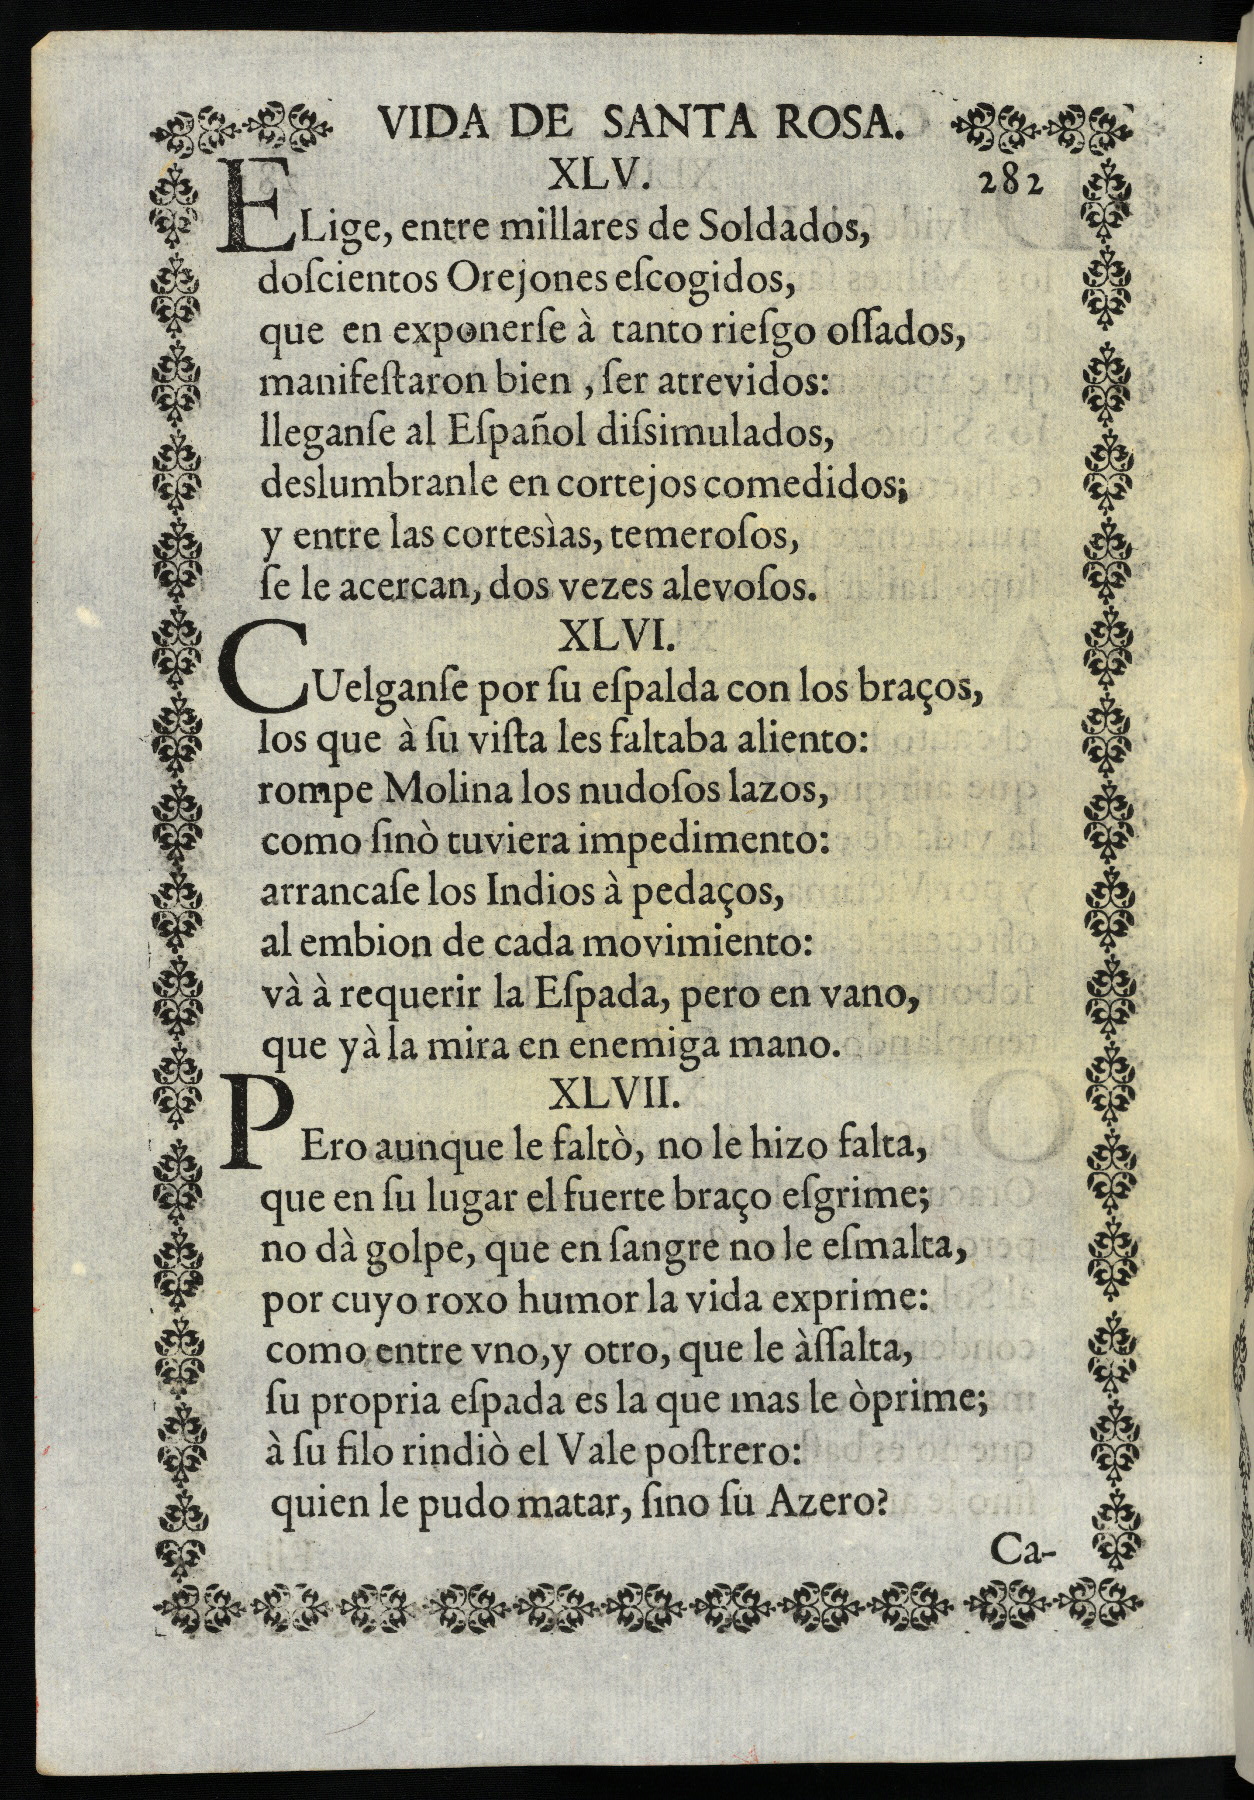 VIDA DE SANTA ROSA.
XLV. 282
ELige, entre millares de Soldados,
doſcientos Orejones eſcogidos,
que en exponerſe à tanto rieſgo oſſados,
manifeſtaron bien , ſer atrevidos:
lleganſe al Eſpañol diſsimulados,
deslumbranle en cortejos comedidos;
y entre las cortesìas, temeroſos,
ſe le acercan, dos vezes alevoſos.
XLVI.
CUelganſe por ſu eſpalda con los braços,
los que à ſu viſta les faltaba aliento:
rompe Molina los nudoſos lazos,
como ſinò tuviera impedimento:
arrancaſe los Indios à pedaços,
al embion de cada movimiento:
và à requerir la Eſpada, pero en vano,
que yà la mira en enemiga mano.
XLVII.
PEro aunque le faltò, no le hizo falta,
que en ſu lugar el fuerte braço eſgrime;
no dà golpe, que en ſangre no le eſmalta,
por cuyo roxo humor la vida exprime:
como entre vno,y otro, que le àſſalta,
ſu propria eſpada es la que mas le òprime;
à ſu filo rindiò el Vale poſtrero:
quien le pudo matar, ſino ſu Azero?
Ca-